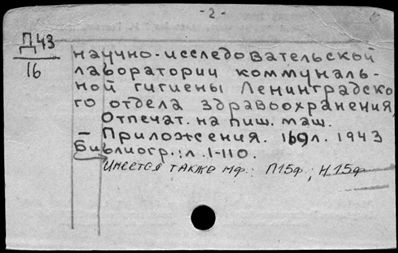 - 2 -
Д43
16
научно-исследовательской
лаборатории коммуналь-
ной гигиены Ленинградско
го отдела здравоохранения,
Отпечат. на пиш. маш.
— Приложения. 169л. 1943
Библиогр.: л. 1-110.
Имеется также мф.: П15ф.; Н.15ф.